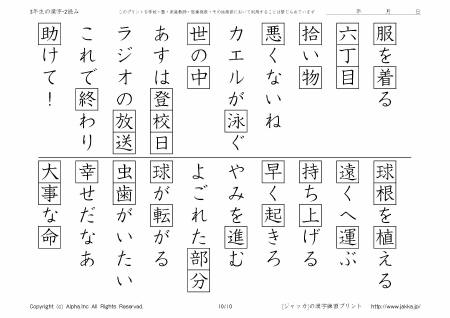 3年生の漢字-2読み
このプリントを学校・塾・家庭教師・医療機関・その他施設において利用することは禁じられています
年　月　日
服を着る
六丁目
拾い物
悪くないね
カエルが泳ぐ
世の中
あすは登校日
ラジオの放送
これで終わり
助けて！
球根を植える
遠くへ運ぶ
持ち上げる
早く起きろ
やみを進む
よごれた部分
球が転がる
虫歯がいたい
幸せだなあ
大事な命
Copyright (c) Alpha.Inc All Rights Reserved.
10/10
[ジャッカ]の漢字練習プリント　http://www.jakka.jp/